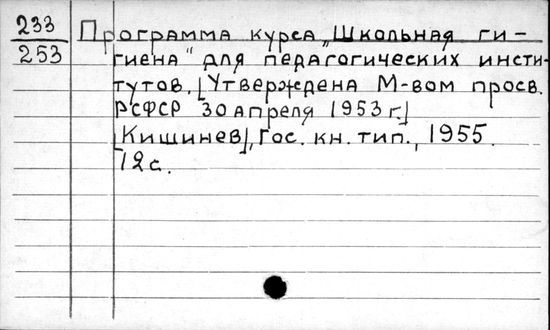 233
253
Программа курса „Школьная ги-
гиена" для педагогических инсти-
тутов. [Утверждена М-вом просв.
РСФСР 30 апреля 1953 г.]
[Кишинев], Гос. кн. тип., 1955.
12 с.